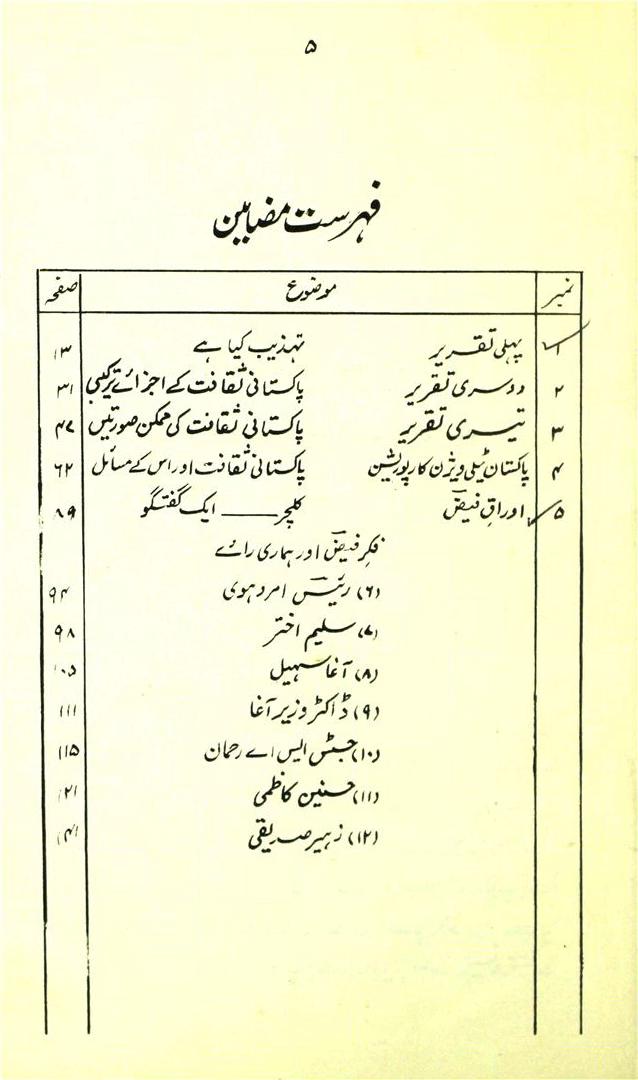 ۵
فہرست مضامین
نمبر موضوع صفحہ
۱ پہلی تقریر تہذیب کیا ہے ۱۳
۲ دوسری تقریر پاکستانی ثقافت کے اجزائے ترکیبی ۳۱
۳ تیسری تقریر پاکستانی ثقافت کی ممکن صورتیں ۴۷
۴ پاکستان ٹیلی ویژن کارپوریشن پاکستانی ثقافت اور اس کے مسائل ۶۲
۵ اوراقِ فیضؔ کلچر ـــــ ایک گفتگو ۸۹
فکرِ فیضؔ اور ہماری رائے
(۶) رئیسؔ امروہوی ۹۴
(۷) سلیم اختر ۹۸
(۸) آغا سہیل ۱۰۵
(۹) ڈاکٹر وزیر آغا ۱۱۱
(۱۰) جسٹس ایس اے رحمان ۱۱۵
(۱۱) حسنین کاظمی ۱۲۱
(۱۲) زہیر صدیقی ۱۴۱